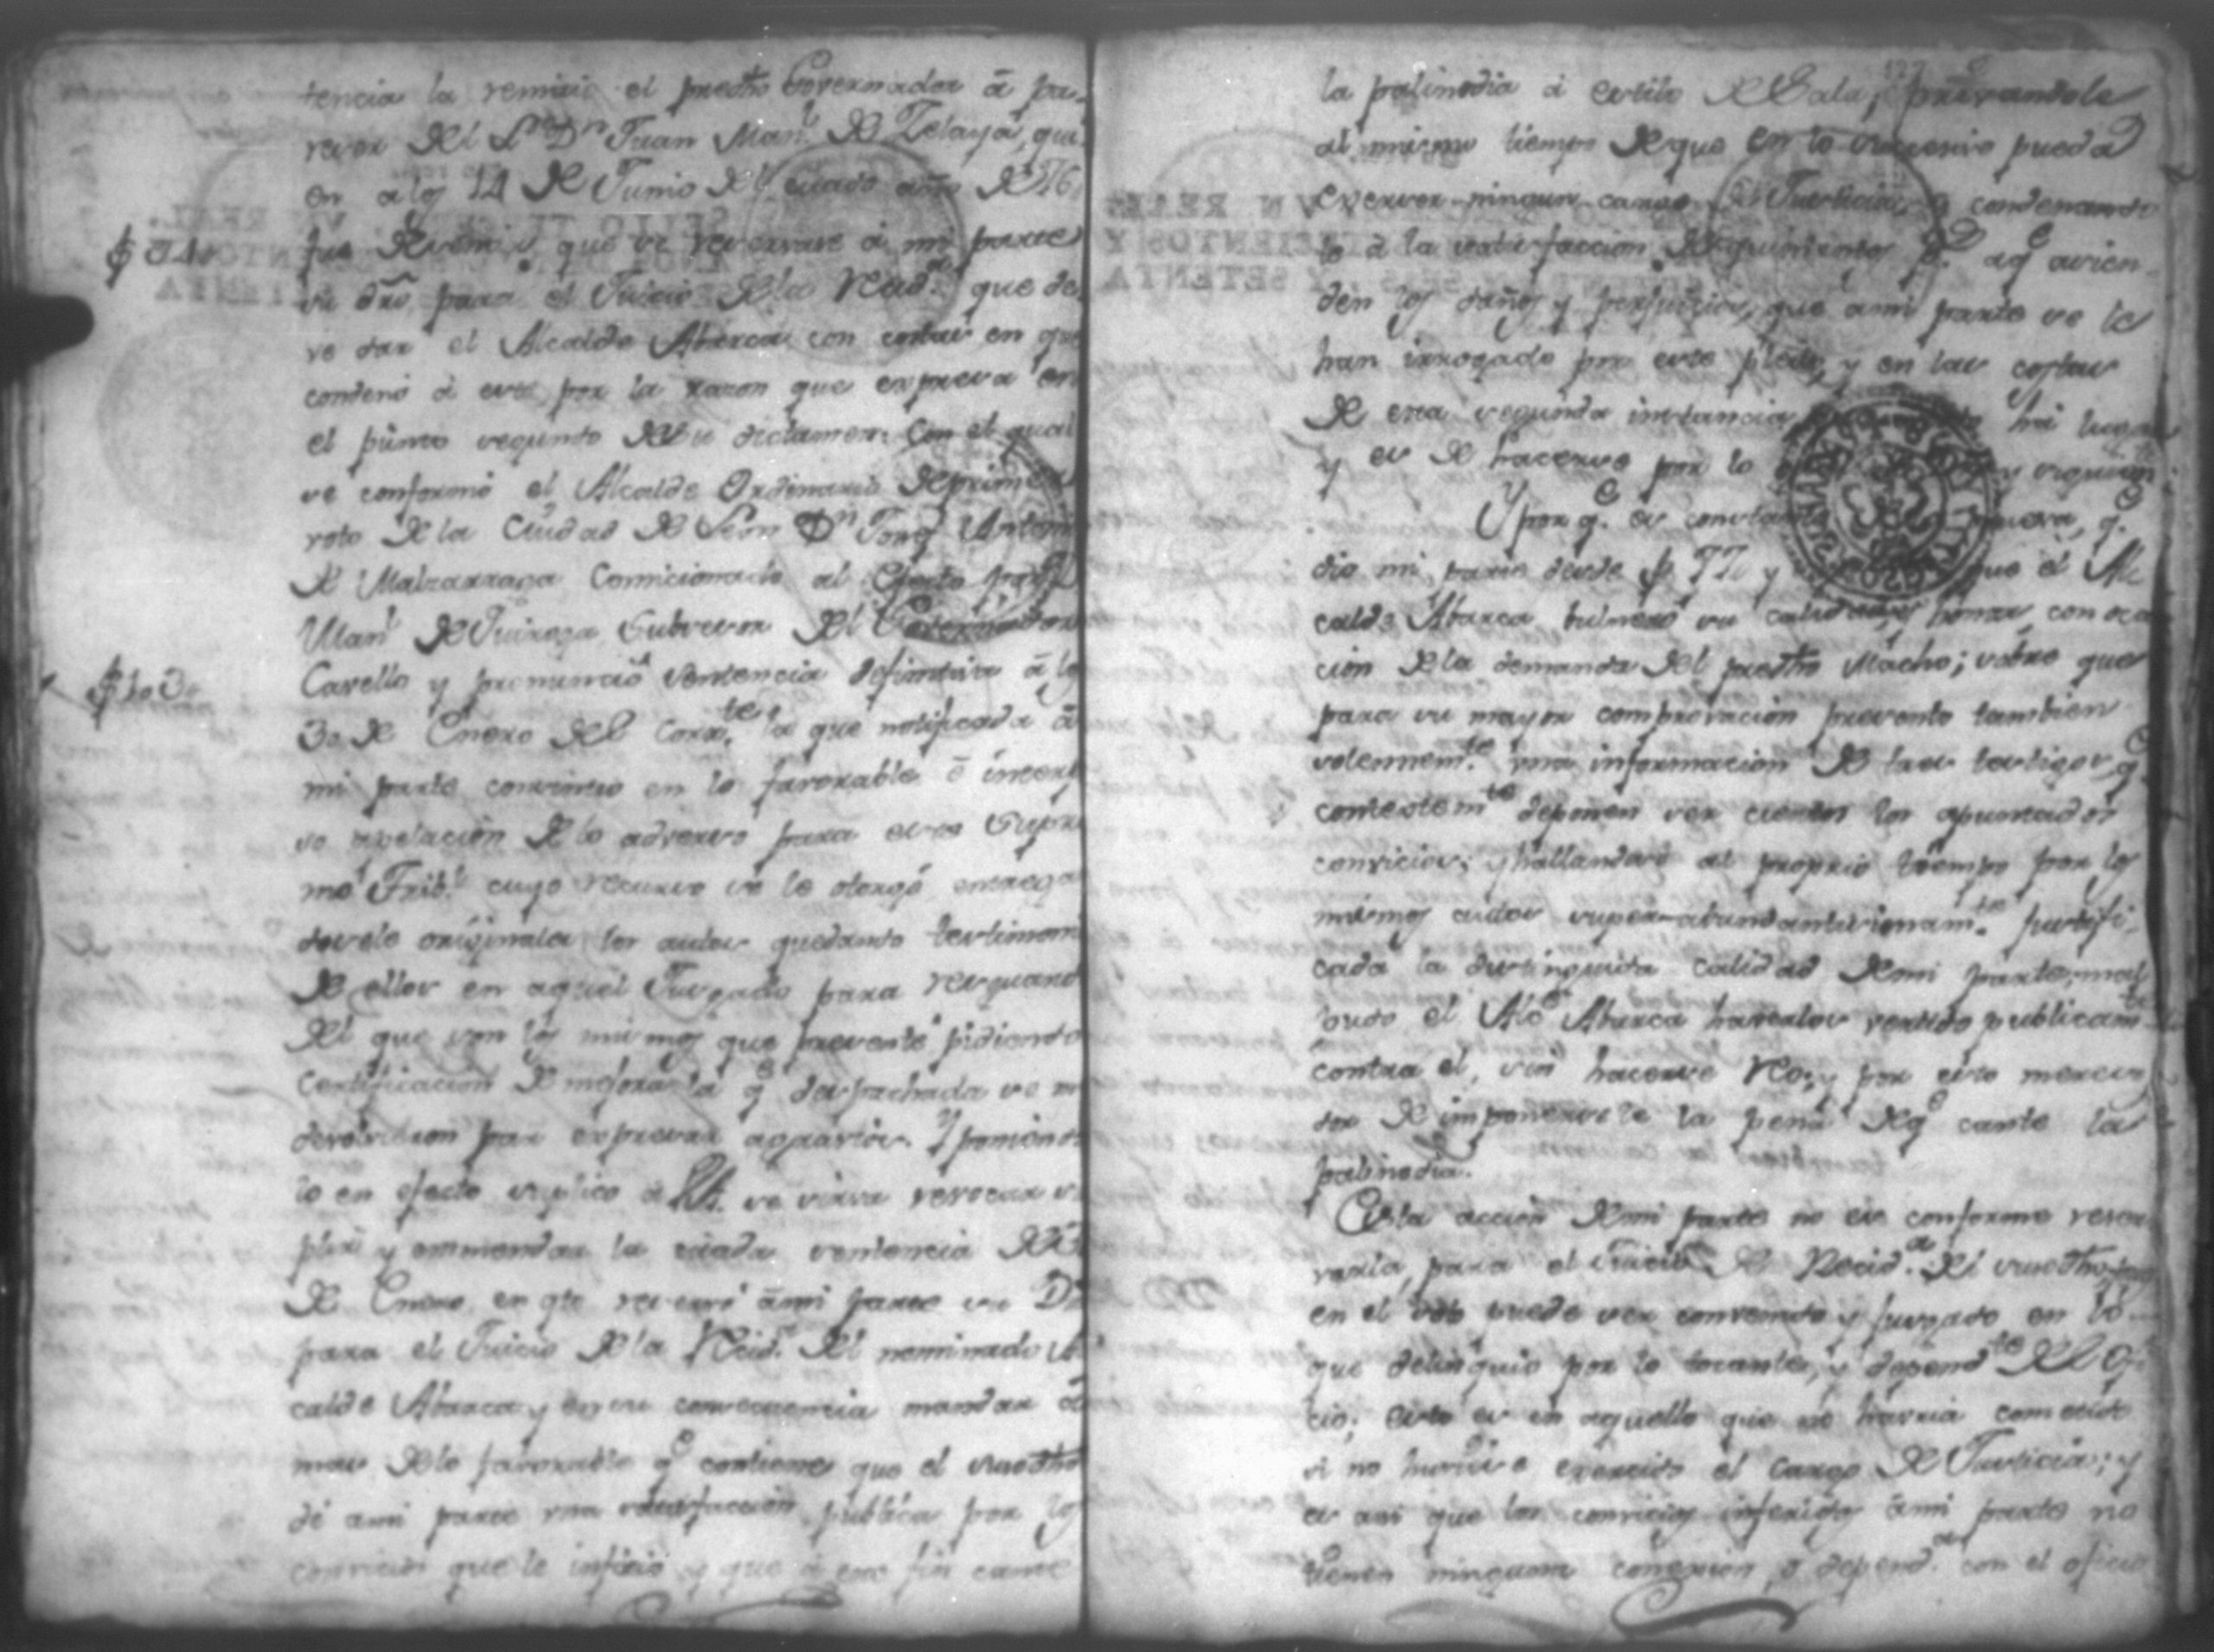 tencia la remitió el predho Governador â pa-
recer del Sr. Dn. Juan Manl. de Zelaya, qui-
en a los 14 de Junio del citado año de 76
f 94. fue de sentir, que se reservase â mi parte
su dro. para el Juicio de la Resida. que de-
ve dar el Alcalde Abarca con costas en que
condenó â este por la razon que expresa en
el punto segundo de su dictamen: Con el qual
se conformó el Alcalde Ordinario de primer
voto de la Ciudad de Leon Dn. Jorge Antonio
de Malzarraga Comicionado al efecto por
Manl. de Quiroga Subcesor del Governador
f 103. Cavello y pronunció sentencia definitiva â los
30 de Enero del corrte. la que notificada â
mi parte consintió en lo favorable é interpu-
so apelación de lo adverso para este Supre-
mo Tribl. cuyo recurso se le otorgó entregan-
dosele originales los autos quedando testimonio
de ellos en aquel Juzgado para resguardo
del que son los mismos que presenté pidiendo
Certificacion de mejora la qe. despachada se
devolvieron par expresar agravios. Y poniendo-
lo en efecto suplico â VA. se sirva revocar su-
plir y enmendar la citada sentencia de 30
de Enero en qe. reservó âmi parte su Dro.
para el Juicio de la Resida. del nominado Al-
calde Abarca y en su consecuencia mandar â
mas de lo favorable qe. contiene que el susodho
dé ami parte una satisfaccion publica por los
convicios que le infirió y que â este fin cante
la palinodia â estilo de Sala, privandole
al mismo tiempo de que en lo sucesivo pueda
exercer ningun cargo de Justicia, y condenando-
lo â la satisfaccion de quinientos ps. aqe. acien-
den los daños y perjuicios, que ami parte se le
han irrogado por este pleito, y en las costas
de esta segunda instancia hai lugar
y es de hacerse por lo siguiente
Y por qe. es constante qe.
dio mi parte desde f 77 y que el Al-
calde Abarca bulneró su calidad, y honor, con oca-
cion de la demanda del predho Macho; sobre que
para su mayor comprovacion presento tambien
solemnemte. una informacion de tres testigos, qe.
contestemte. deponen ser ciertos los apuntados
convicios; y hallandose al proprio tiempo por los
mismos autos super-abundantisimamte. justifi-
cada la distinguida calidad de mi parte,
el Alce. Abarca haverlos vertido publicamte.
contra él, sin hacerse Reo, y por esto merece-
dor de imponersele la pena de qe. cante la
palinodia.
Esta accion de mi parte no es conforme reser-
varla, para el Juicio de Resida. del susodho
en el solo puede ser convenido y juzgado en lo
que delinquió por lo tocante, y dependte. del ofi-
cio; esto es en aquello que no havria cometido
si no huviese exercido el cargo de Justicia; y
es asi que los convicios inferidos âmi parte no
tienen ninguna conexion, ó dependa. con el oficio